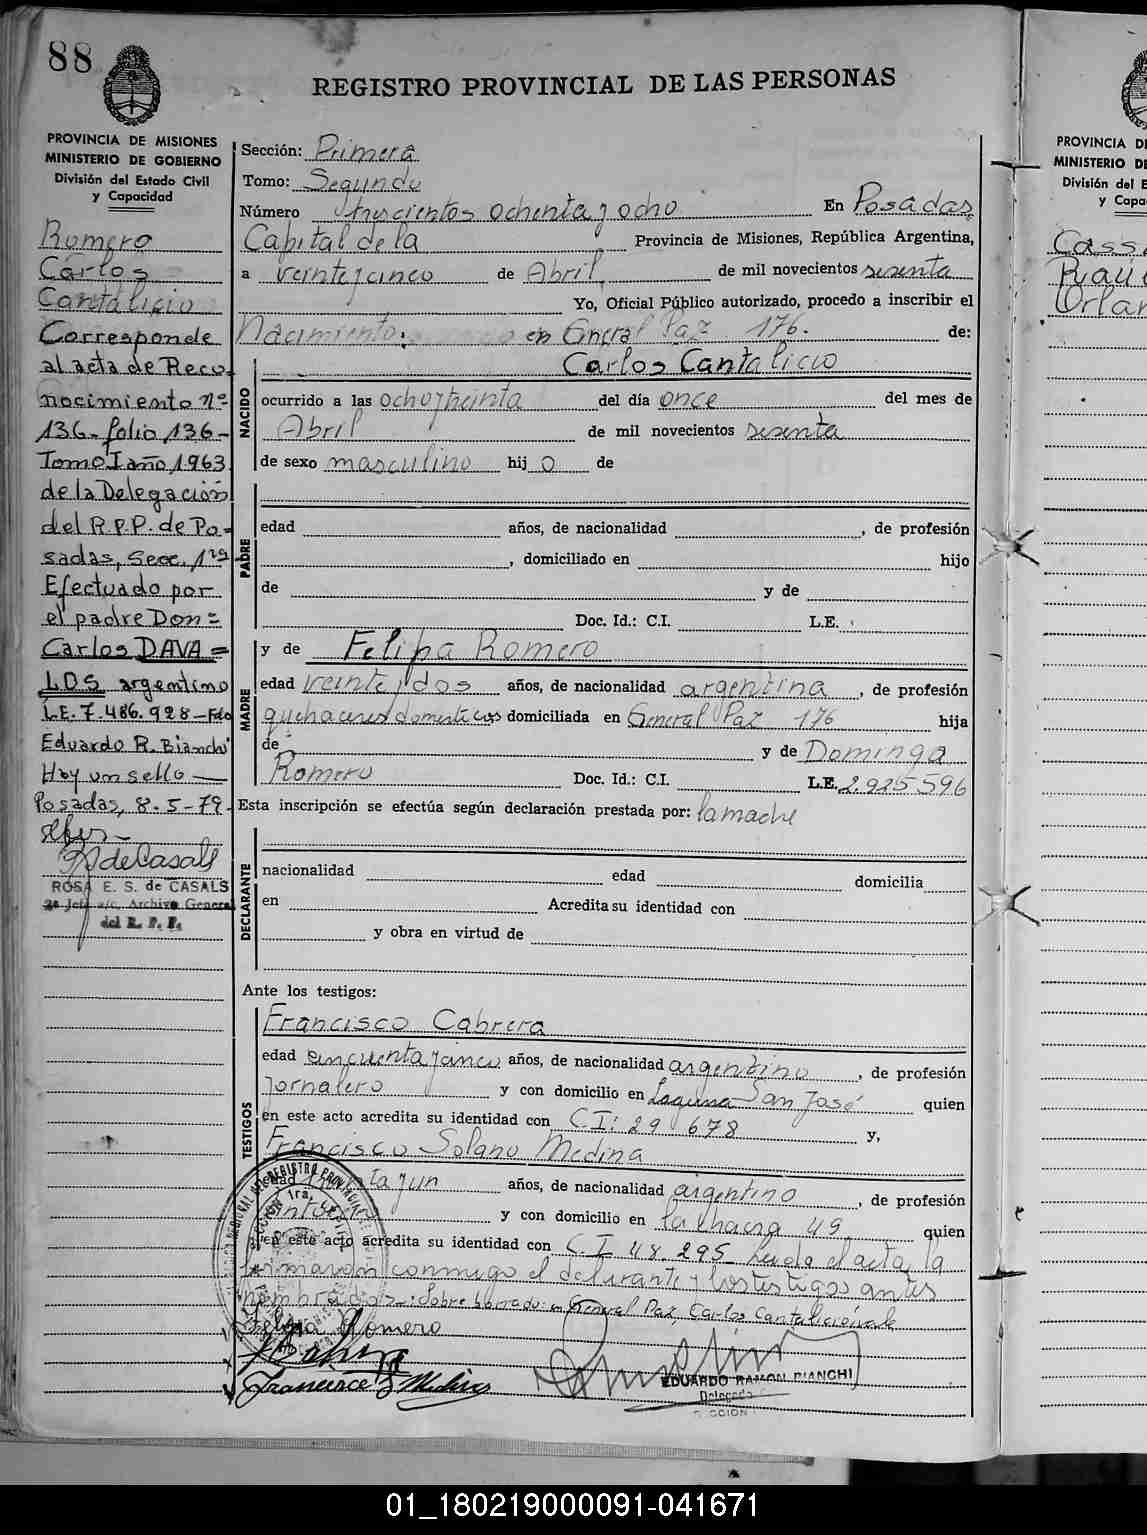 88
REGISTRO PROVINCIAL DE LAS PERSONAS
PROVINCIA DE MISIONES
MINISTERIO DE GOBIERNO
División del Estado Civil
y Capacidad
Romero
Carlos
Cantalicio
Corresponde
al acta de Reco-
nocimiento nº
136-folio 136-
Tomo I año 1963
de la Delegación
del R.P.P. de Po-
sadas, Secc. 1ra
Efectuado por
el padre Don=
Carlos DAVA=
LOS argentino
L.E. 7.486.928-Fdo
Eduardo R. Bianchi
Hay un sello —
Posadas, 8-5-79-
de Casals
ROSA E. S. de CASALS
2a Jefe a/c. Archivo General
del R. P. P.
Sección: Primera
Tomo: Segundo
Número trescientos ochenta y ocho En Posadas
Capital de la Provincia de Misiones, República Argentina,
a veinte y cinco de Abril de mil novecientos sesenta
Yo, Oficial Público autorizado, procedo a inscribir el
Nacimiento: en General Paz 176. de:
Carlos Cantalicio
NACIDO
ocurrido a las ocho y treinta del día once del mes de
Abril de mil novecientos sesenta
de sexo masculino hij o de
PADRE
edad años, de nacionalidad , de profesión
, domiciliado en hijo
de y de
Doc. Id.: C.I. L.E.
y de Felipa Romero
MADRE
edad veinte y dos años, de nacionalidad argentina, de profesión
quehaceres domesticos domiciliada en General Paz 176 hija
de y de Dominga
Romero Doc. Id.: C.I. L.E. 2.925596
Esta inscripción se efectúa según declaración prestada por: la madre
DECLARANTE
nacionalidad edad domicilia
en Acredita su identidad con
y obra en virtud de
Ante los testigos:
TESTIGOS
Francisco Cabrera
edad cincuenta y cinco años, de nacionalidad argentino, de profesión
jornalero y con domicilio en Laguna San José quien
en este acto acredita su identidad con C.I: 29 678 y,
Francisco Solano Medina
edad treinta y un años, de nacionalidad argentino, de profesión
y con domicilio en la chacra 49 quien
en este acto acredita su identidad con C.I. 48.295 Leida el acta, la
firmaron conmigo el declarante y los testigos antes
nombrados-: Sobre borrado: en General Paz, Carlos Cantalicio:vale
Felipa Romero
Francisco S Medina
EDUARDO RAMON BIANCHI
Delegado
Cassa
Orlan
PROVINCIA DE
MINISTERIO DE
División del E
y Capa
01_180219000091-041671